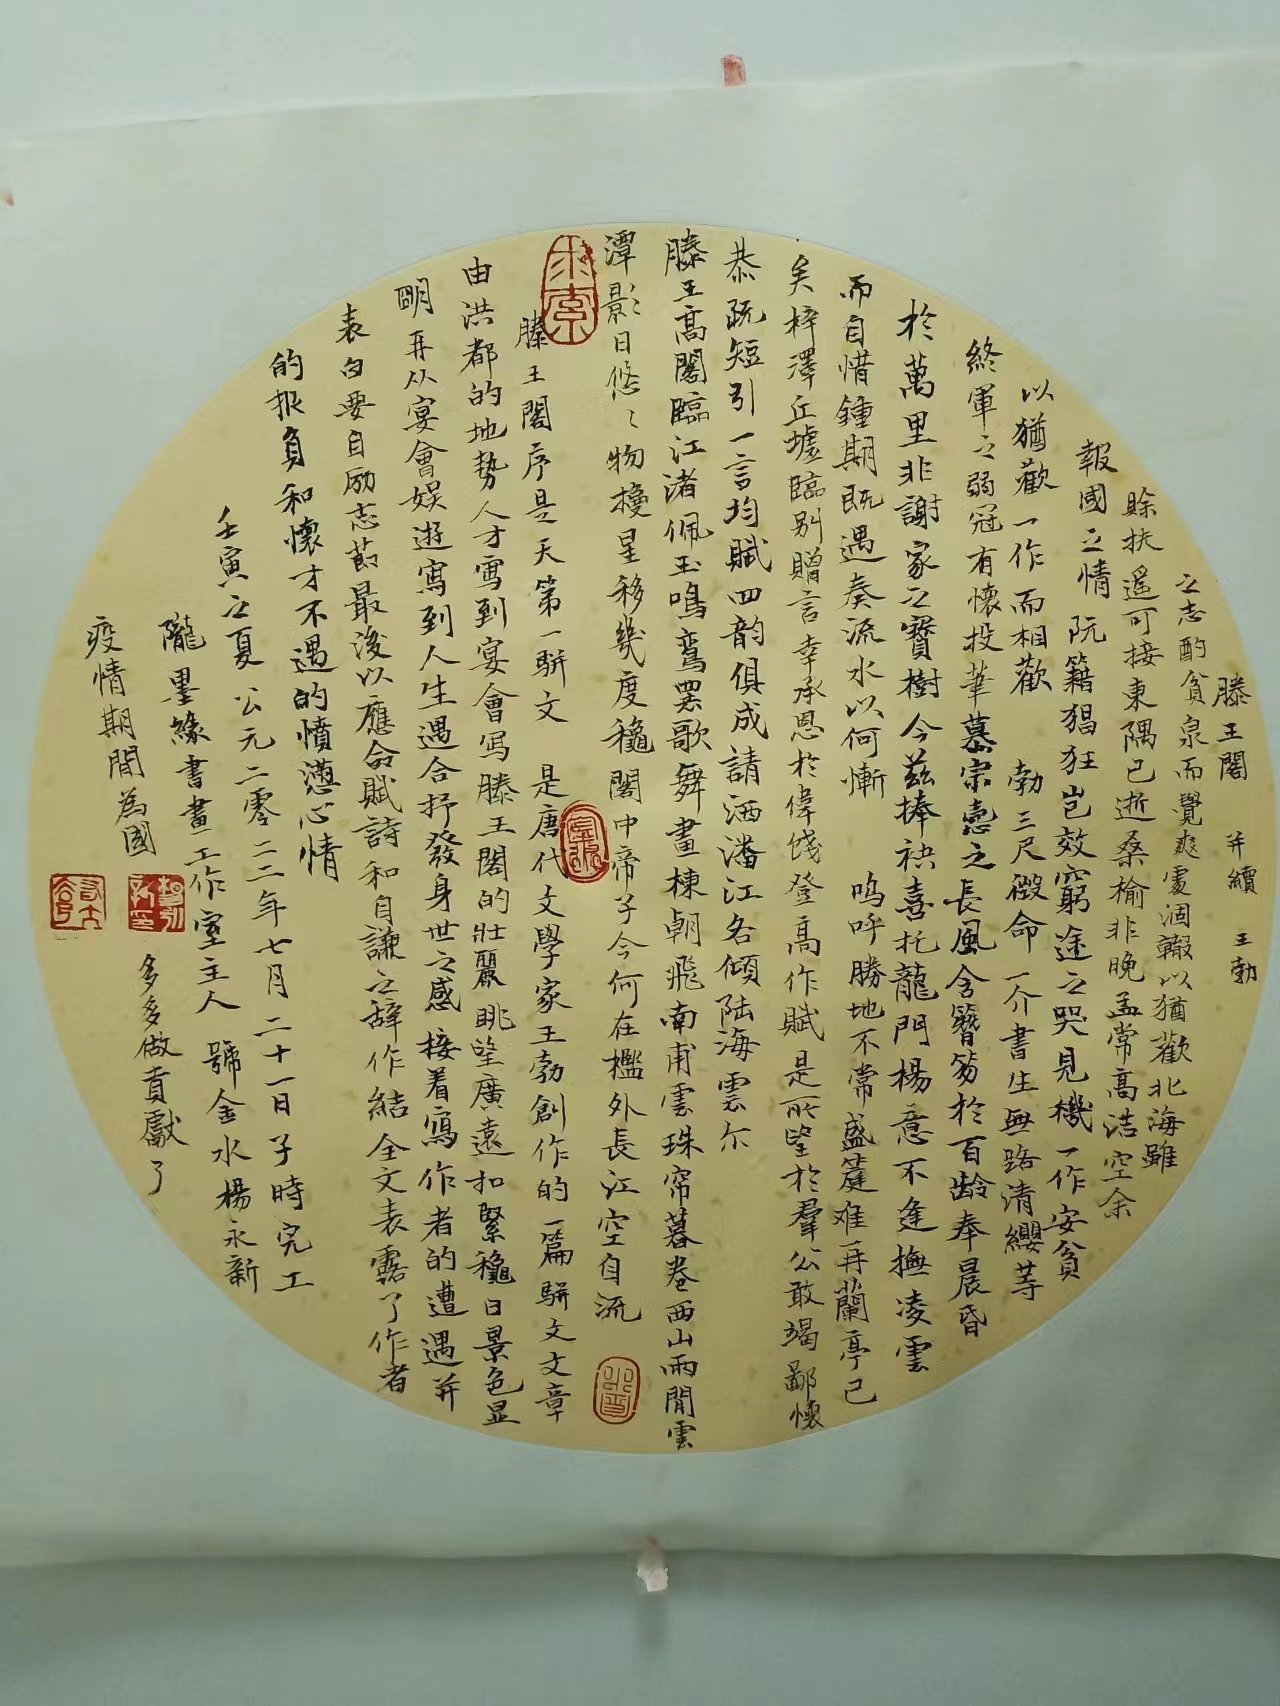 滕王閣 并續 王勃
之志酌貪泉而覺爽處涸轍以猶歡北海雖
賒扶遥可接東隅已逝桑榆非晚孟常高洁空余
報國之情 阮籍猖狂岂效窮途之哭見機一作安貧
以猶歡一作而相歡 勃三尺微命一介書生無路清纓等
終軍之弱冠有懷投筆慕宗慤之長風含簪笏於百龄奉晨昏
於萬里非謝家之寶樹今兹捧袂喜托龍門楊意不逢撫凌雲
而自惜鍾期既遇奏流水以何慚 嗚呼勝地不常盛筵难再蘭亭已
矣梓澤丘墟臨别贈言幸承恩於偉餞登高作賦是所望於羣公敢竭鄙懷
恭疏短引一言均賦四韵俱成請洒潘江各傾陆海雲尔
滕王高閣臨江渚佩玉鳴鸾罢歌舞畫棟朝飛南甫雲珠帘暮卷西山雨閒雲
潭影日悠〻物換星移幾度穐閣中帝子今何在檻外長江空自流
滕王閣序是天第一駢文 是唐代文學家王勃創作的一篇駢文文章
由洪都的地势人才寫到宴會写滕王閣的壯麗眺望廣遠扣緊穐日景色显
明再从宴會娱遊寫到人生遇合抒發身世之感接着寫作者的遭遇并
表白要自励志節最後以應命賦詩和自謙之辞作結全文表露了作者
的报負和懷才不遇的憤懣心情
壬寅之夏公元二零二二年七月二十一日子時完工
隴墨緣書畫工作室主人 號金水楊永新
疫情期間為國
多多做貢獻了